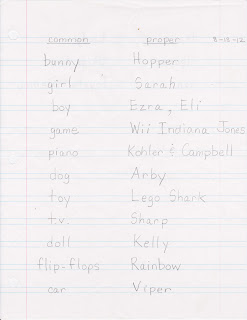 common proper 8-13-12
bunny Hopper
girl Sarah
boy Ezra, Eli
game Wii Indiana Jones
piano Kohler & Campbell
dog Arby
toy Lego Shark
t.v. Sharp
doll Kelly
flip-flops Rainbow
car Viper